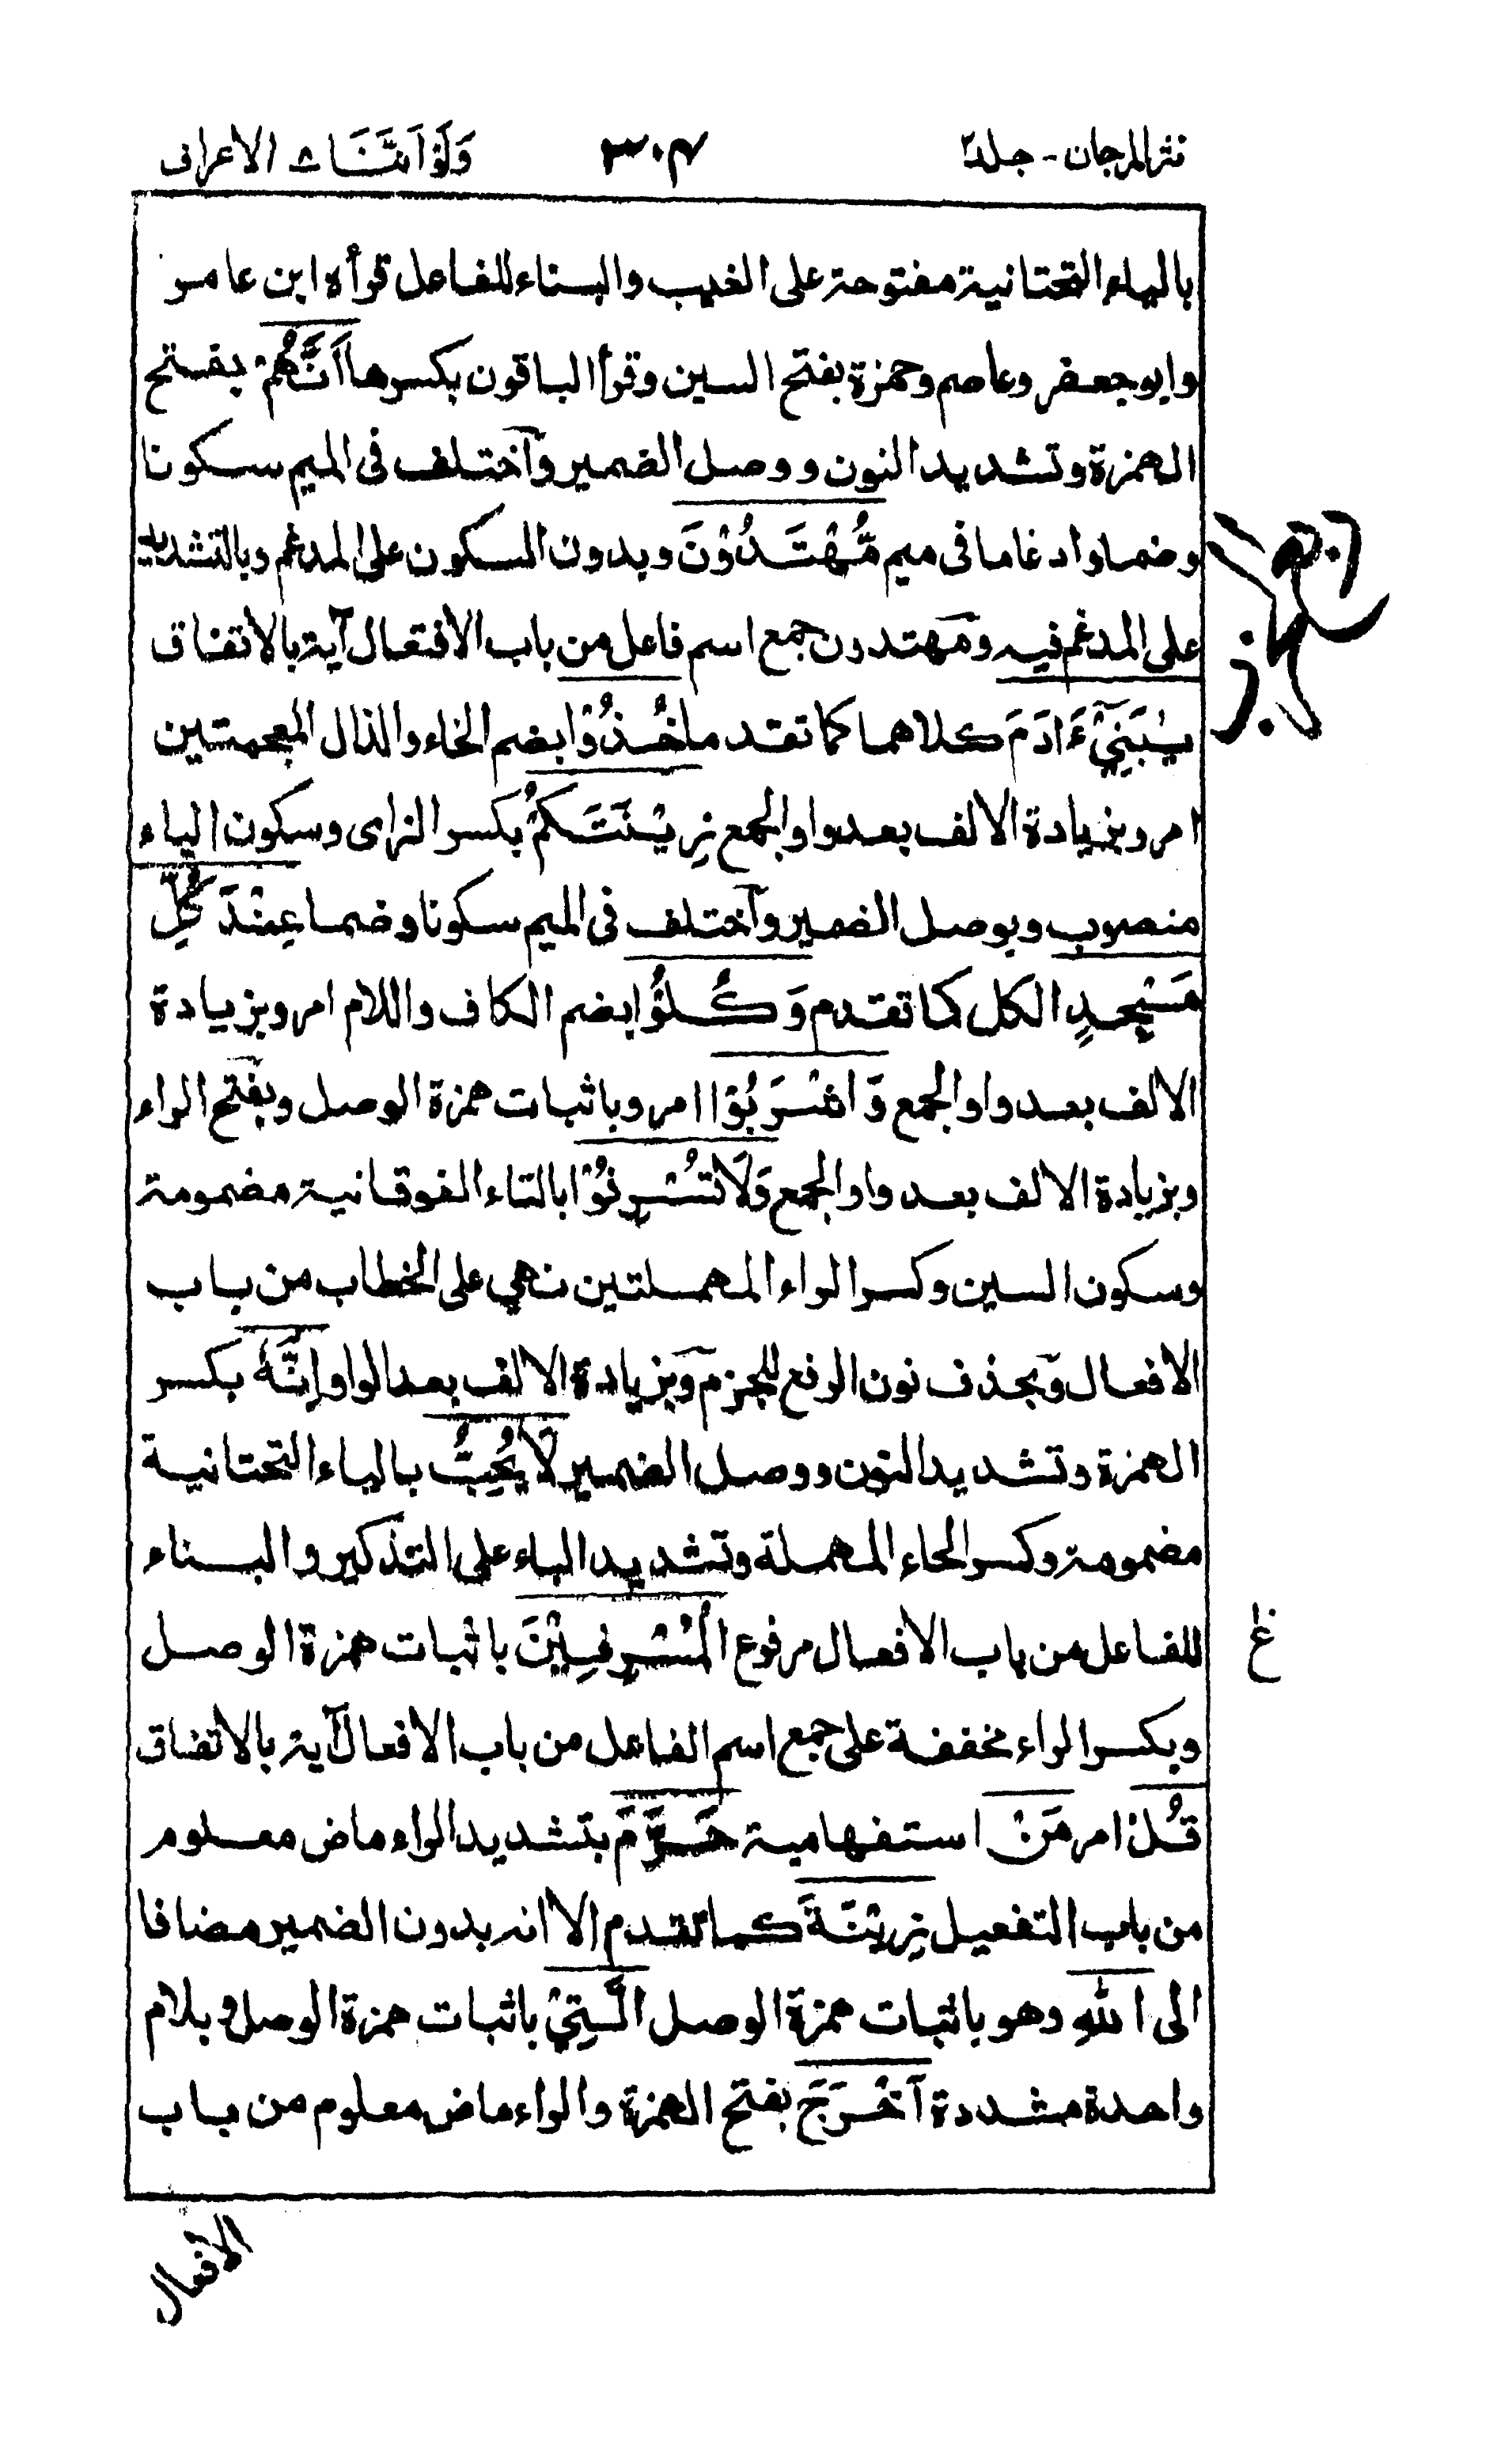 نثر المرجان - جلد٢ ٣٠٤ وَلَوْ اَنَّنَا ٨ الاعراف
بالياء التحتانية مفتوحة على الغيب والبناء للفاعل قرأه ابن عامر
وابو جعفر وعاصم وحمزة بفتح السين وقرأ الباقون بكسرها اَنَّهُمْ بفتح
الهمزة وتشديد النون ووصل الضمير وآختلف فى الميم سكونا
وضما وادغاما فى ميم مُّهْتَدُوْنَ وبدون السكون على المدغم وبالتشديد
على المدغم فيه ومهتدون جمع اسم فاعل من باب الافتعال آية بالاتفاق
يٰبَنِيْٓ ءَادَمَ كلاهما كما تقدم خُذُوْا بضم الخاء والذال المعجمتين
امر وبزيادة الالف بعد واو الجمع زِيْنَتَكُمْ بكسر الزاى وسكون الياء
منصوب وبوصل الضمير وآختلف فى الميم سكونا وضما عِنْدَ كُلِّ
مَسْجِدٍ الكل كما تقدم وَكُلُوْا بضم الكاف واللام امر وبزيادة
الالف بعد واو الجمع وَاشْرَبُوْا امر وباثبات همزة الوصل وبفتح الراء
وبزيادة الالف بعد واو الجمع وَلَا تُسْرِفُوْا بالتاء الفوقانية مضمومة
وسكون السين وكسر الراء المهملتين نهي على الخطاب من باب
الافعال وبحذف نون الرفع للجزم وبزيادة الالف بعد الواو اِنَّهٗ بكسر
الهمزة وتشديد النون ووصل الضمير لَا يُحِبُّ بالياء التحتانية
مضمومة وكسر الحاء المهملة وتشديد الباء على التذكير والبناء
للفاعل من باب الافعال مرفوع الْمُسْرِفِيْنَ باثبات همزة الوصل
ع
وبكسر الراء مخففة على جمع اسم الفاعل من باب الافعال آية بالاتفاق
قُلْ امر مَنْ استفهامية حَرَّمَ بتشديد الراء ماض معلوم
من باب التفعيل زِيْنَةَ كما تقدم الا انه بدون الضمير مضافا
الى اللهِ وهو باثبات همزة الوصل الَّتِيْٓ باثبات همزة الوصل وبلام
واحدة مشددة اَخْرَجَ بفتح الهمزة والراء ماض معلوم من باب
الافعال